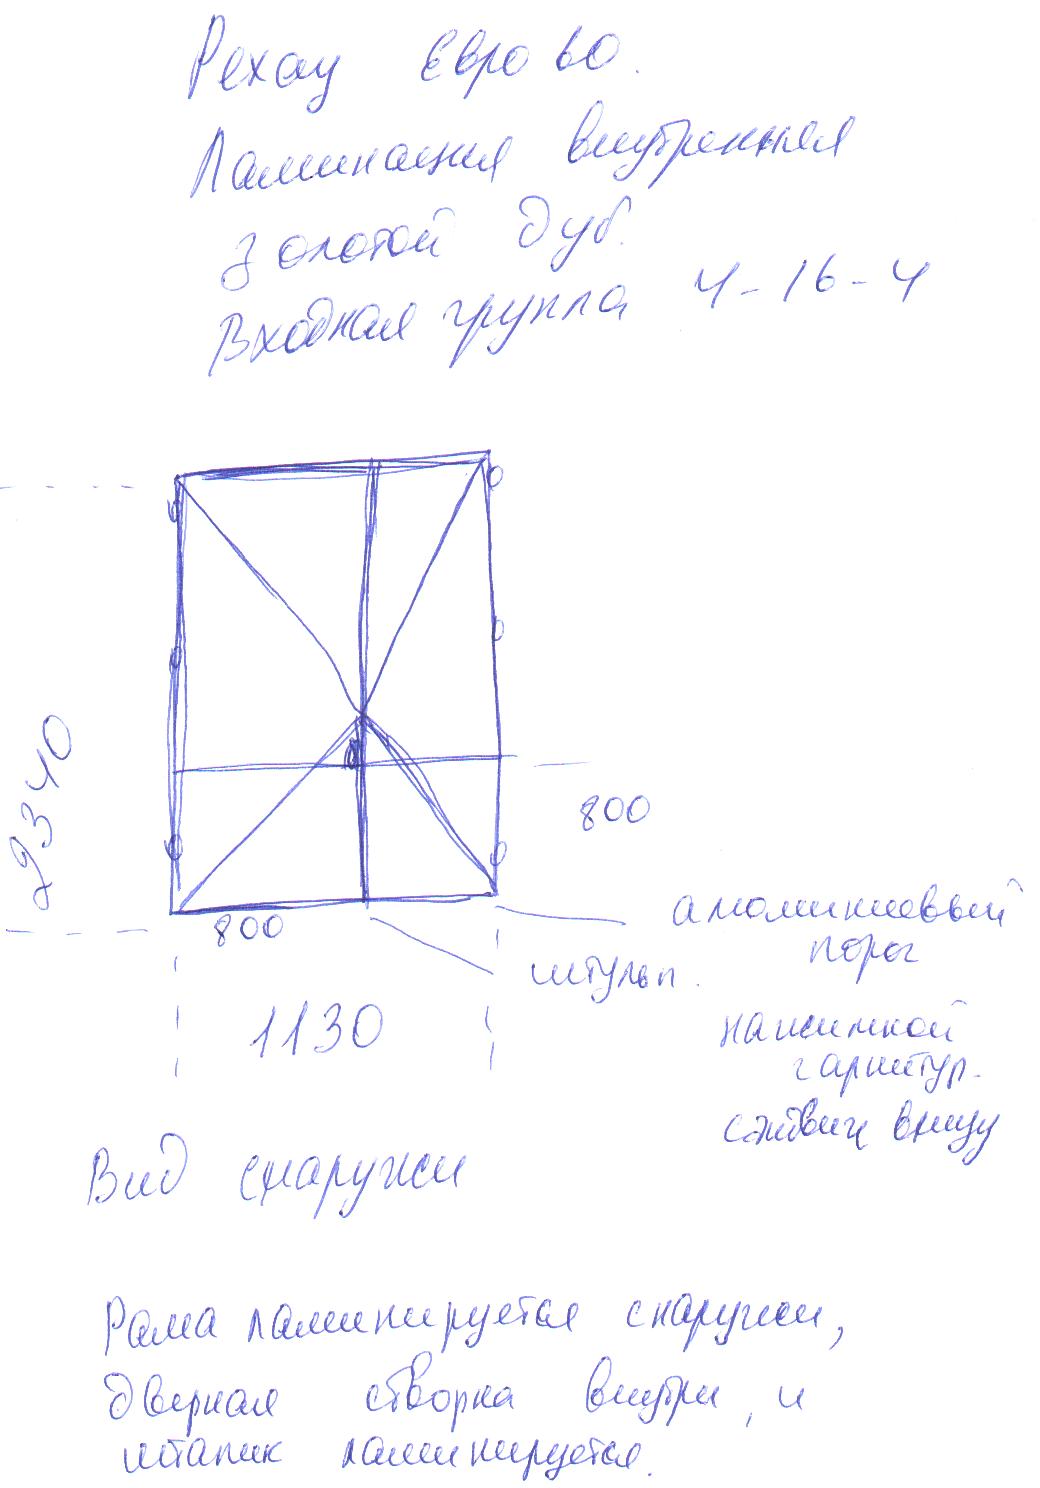 Рехау Евро 60.
Ламинация внутренняя
золотой дуб.
Входная группа 4-16-4
2340
800
800
алюминиевый
порог
штульп.
1130
нажимной
гарнитур.
сэндвич внизу
Вид снаружи
Рама ламинируется снаружи,
дверная створка внутри, и
штапик ламинируется.